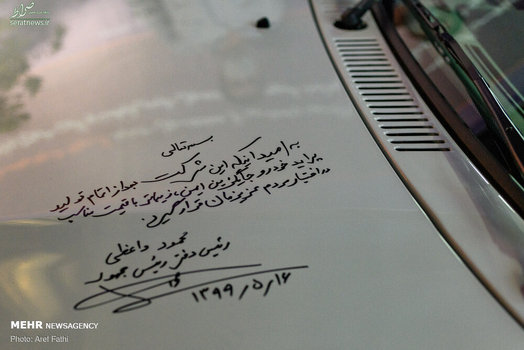 صراط
seratnews.ir
بسمه تعالی
به امید آنکه این شرکت بعد از اتمام تولید
پراید خودرو جایگزین ایمن، زیبا و با قیمت مناسب
در اختیار مردم عزیزمان قرار گیرد.
محمود واعظی
رئیس دفتر رئیس جمهور
۱۳۹۹/۵/۱۶
MEHR NEWSAGENCY
Photo: Arel Fathi